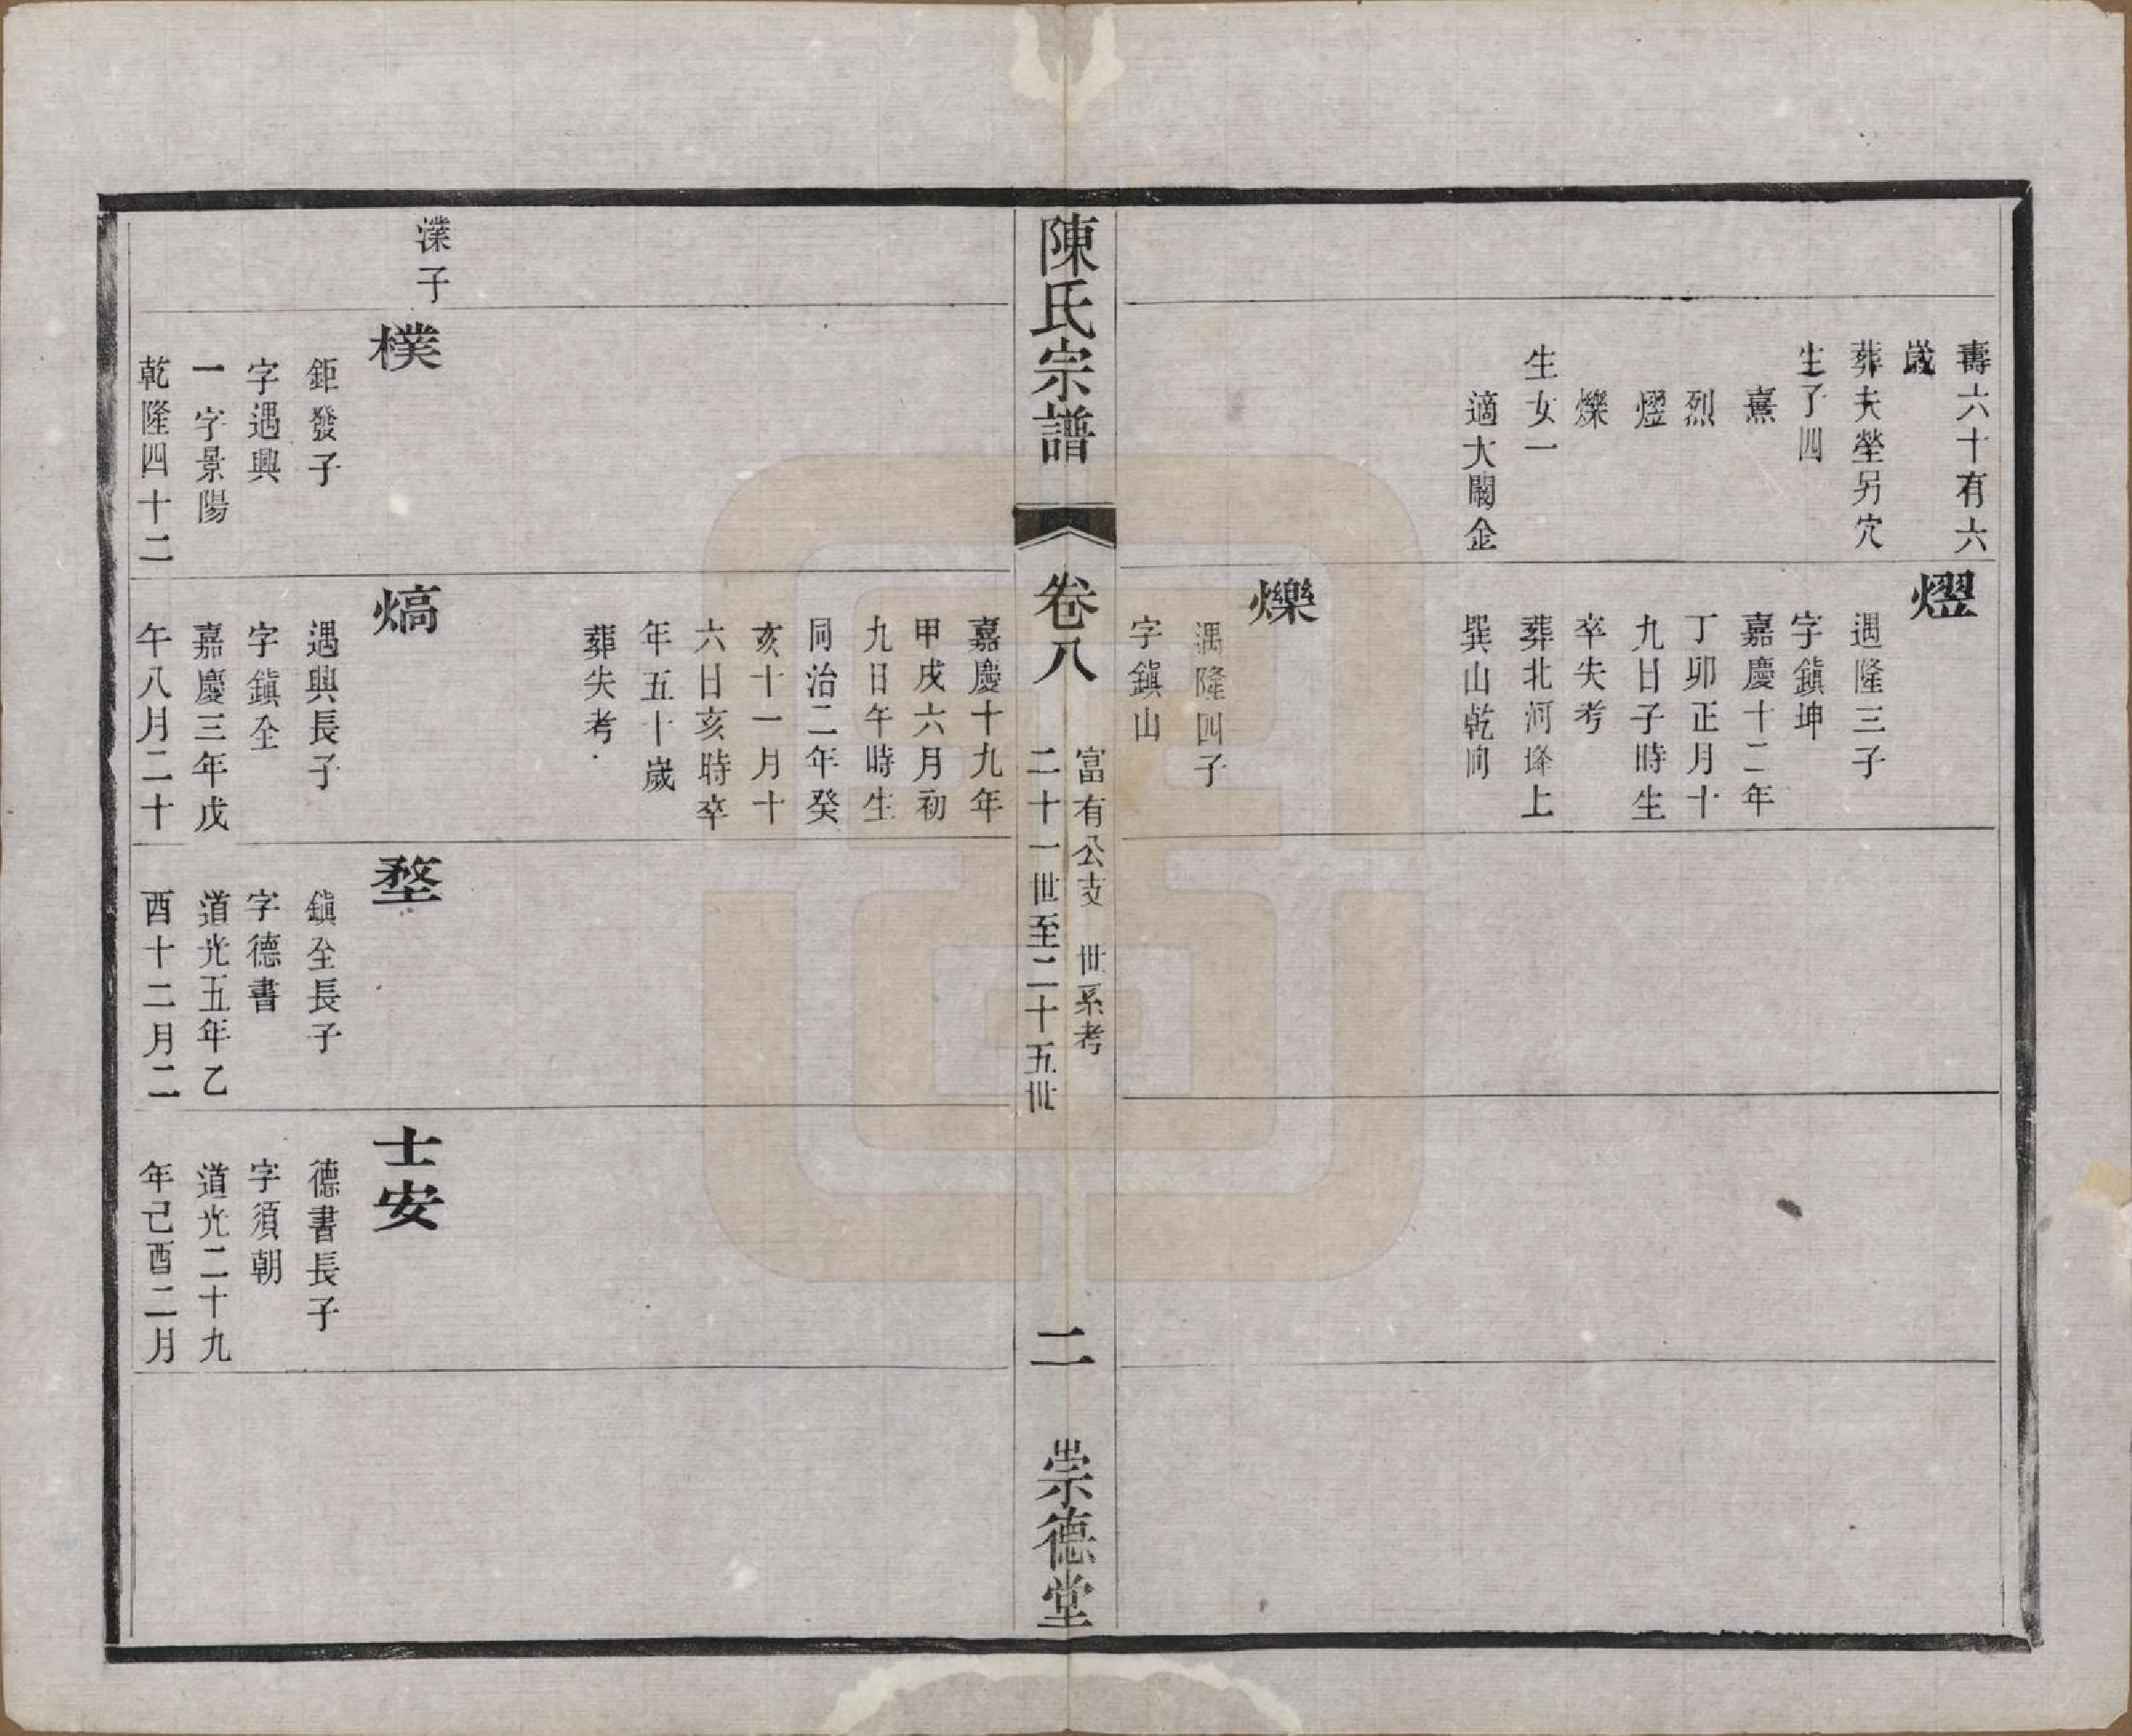 壽六十有六
歲
葬夫塋另穴
生子四
熹
烈
熤
爍
生女一
適大閙金
熤
遇隆三子
字鎮坤
嘉慶十二年
丁卯正月十
九日子時生
卒失考
葬北河墶上
巽山乾向
爍
遇隆四子
字鎮山
陳氏宗譜
卷八
富有公支 世系考
二十一世至二十五世
二
崇德堂
嘉慶十九年
甲戌六月初
九日午時生
同治二年癸
亥十一月十
六日亥時卒
年五十歲
葬失考
濼子
樸
鉅發子
字遇興
一字景陽
乾隆四十二
熇
遇興長子
字鎮全
嘉慶三年戊
午八月二十
堥
鎮全長子
字德書
道光五年乙
酉十二月二
士安
德書長子
字須朝
道光二十九
年己酉二月